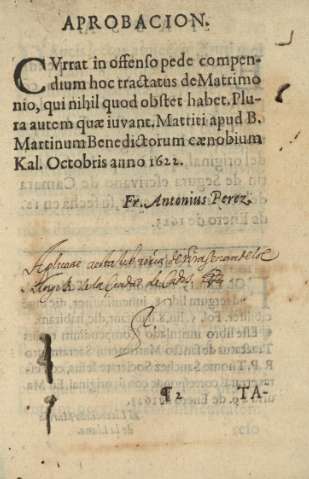 APROBACION.
CVrrat in offenso pede compen-
dium hoc tractatus de Matrimo
nio, qui nihil quod obstet habet. Plu-
ra autem quæ iuvant. Mattiti apud B.
Martinum Benedictorum cænobium
Kal. Octobris anno 1622.
Fr. Antonius Perez.
Aplicase a esta libreria de
de la Ciudad de Cadiz
¶2 TA-